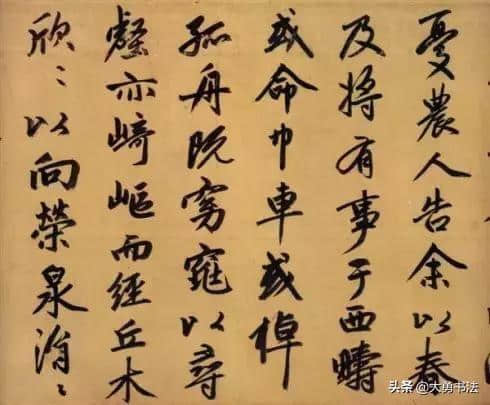 憂農人告余以春
及將有事于西疇
或命巾車或棹
孤舟既窈窕以尋
壑亦崎嶇而經丘木
欣〻以向榮泉涓〻
头条 @大勇书法